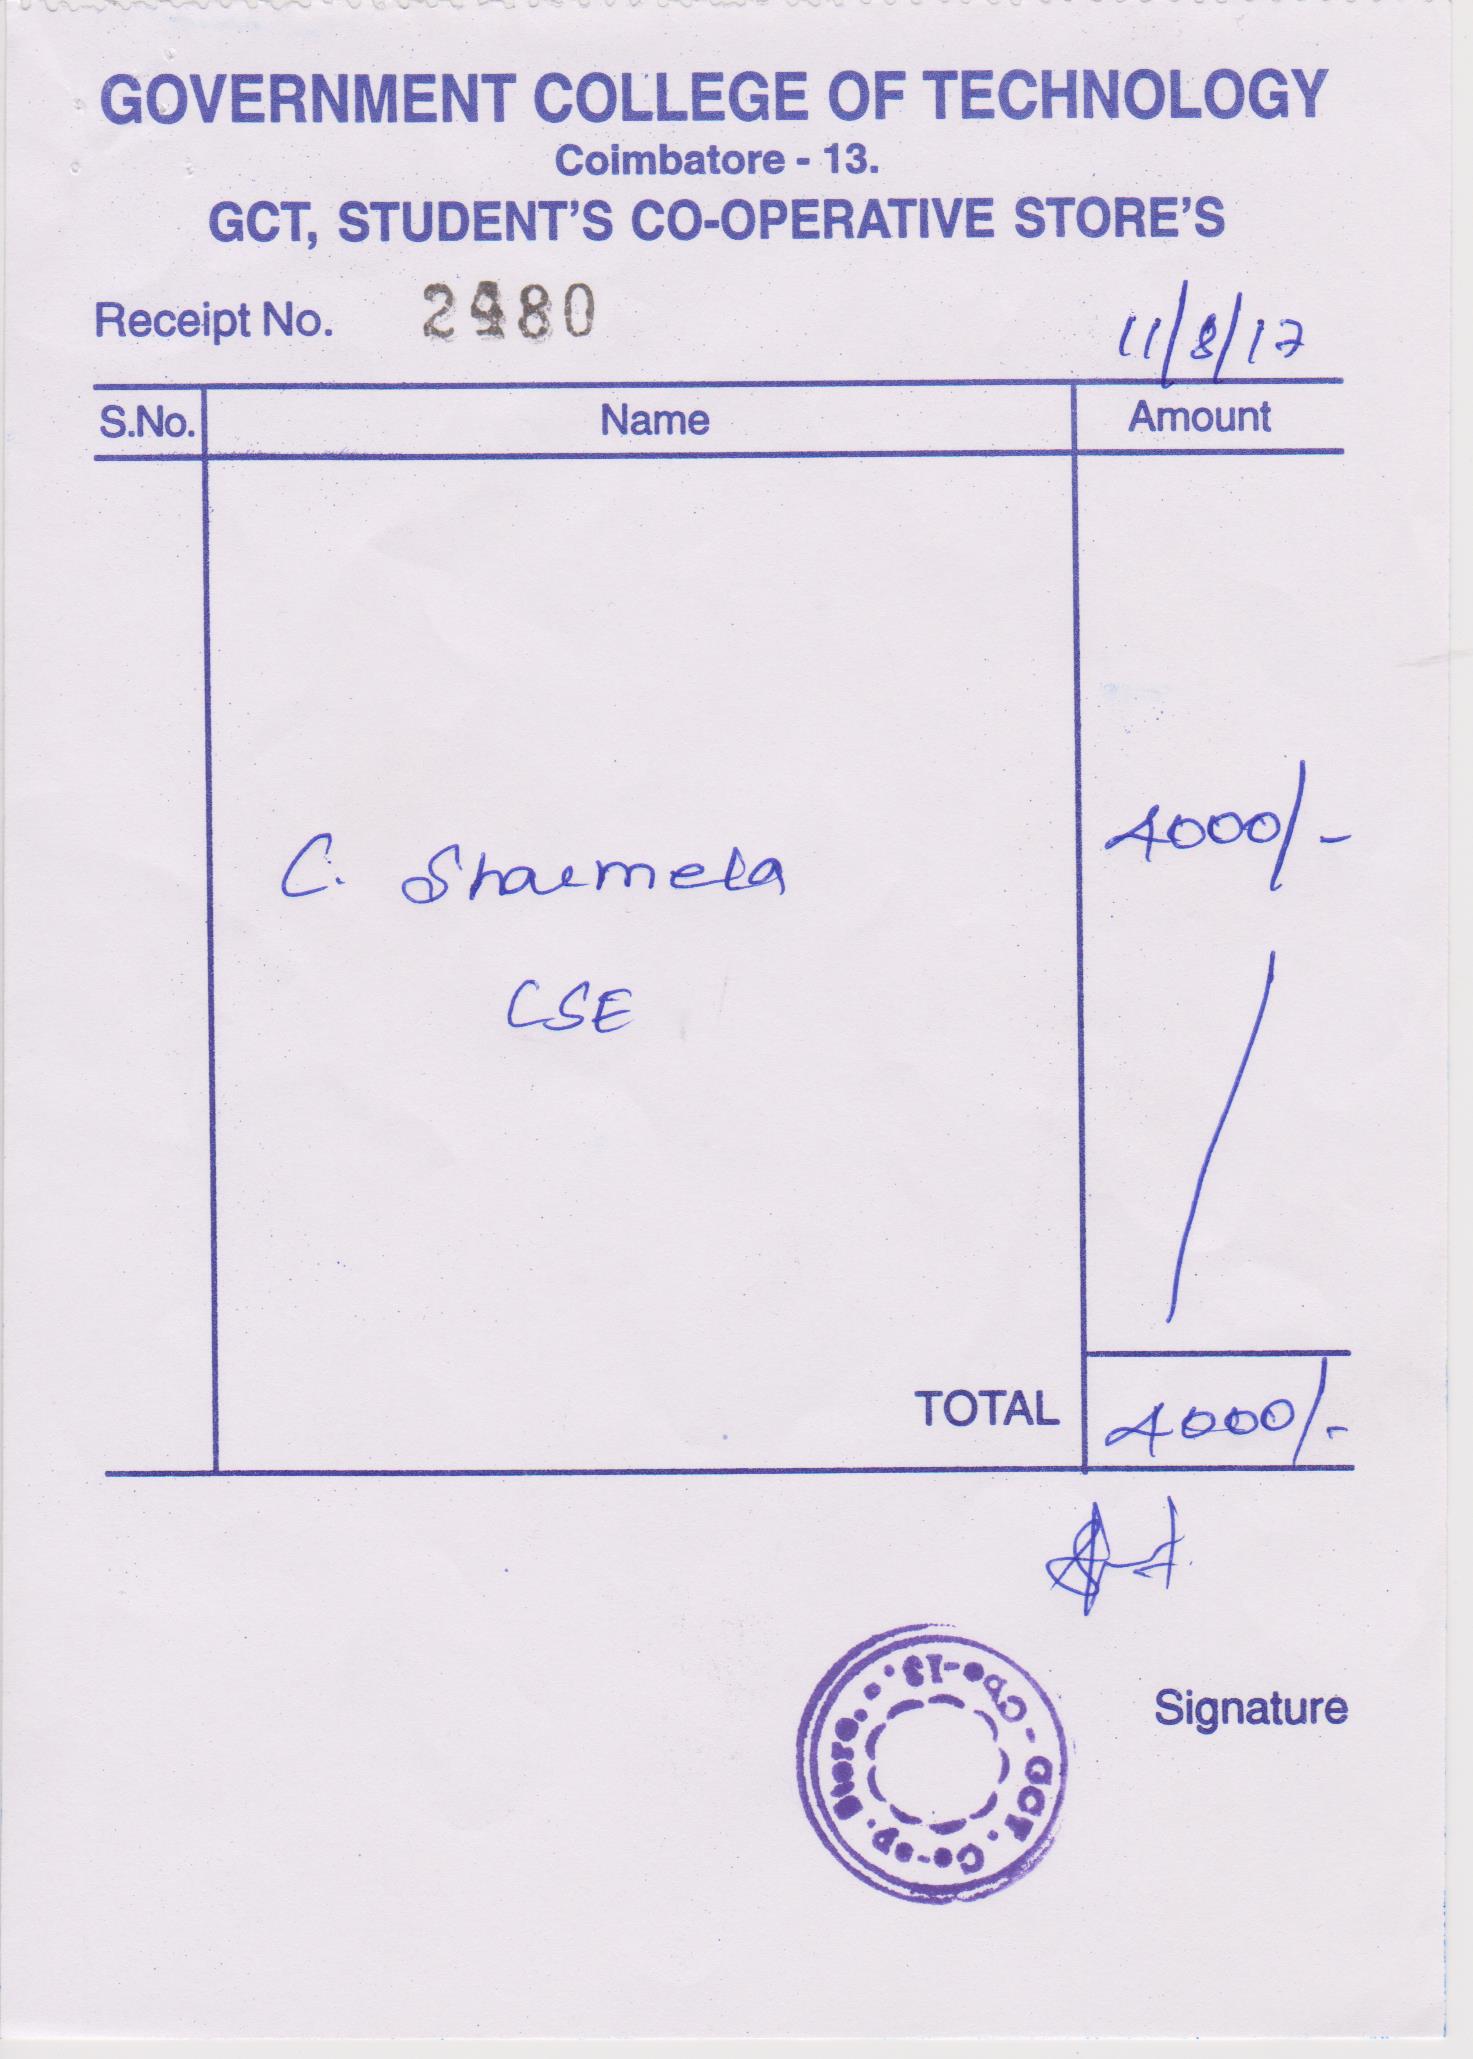 GOVERNMENT COLLEGE OF TECHNOLOGY
Coimbatore - 13.
GCT, STUDENT'S CO-OPERATIVE STORE'S
Receipt No.
11/8/17
S.No. Name Amount
4000/-
C. Sharmela
CSE
TOTAL 4000/-
Signature
GCT. Co-op. Store. Cbe-13.